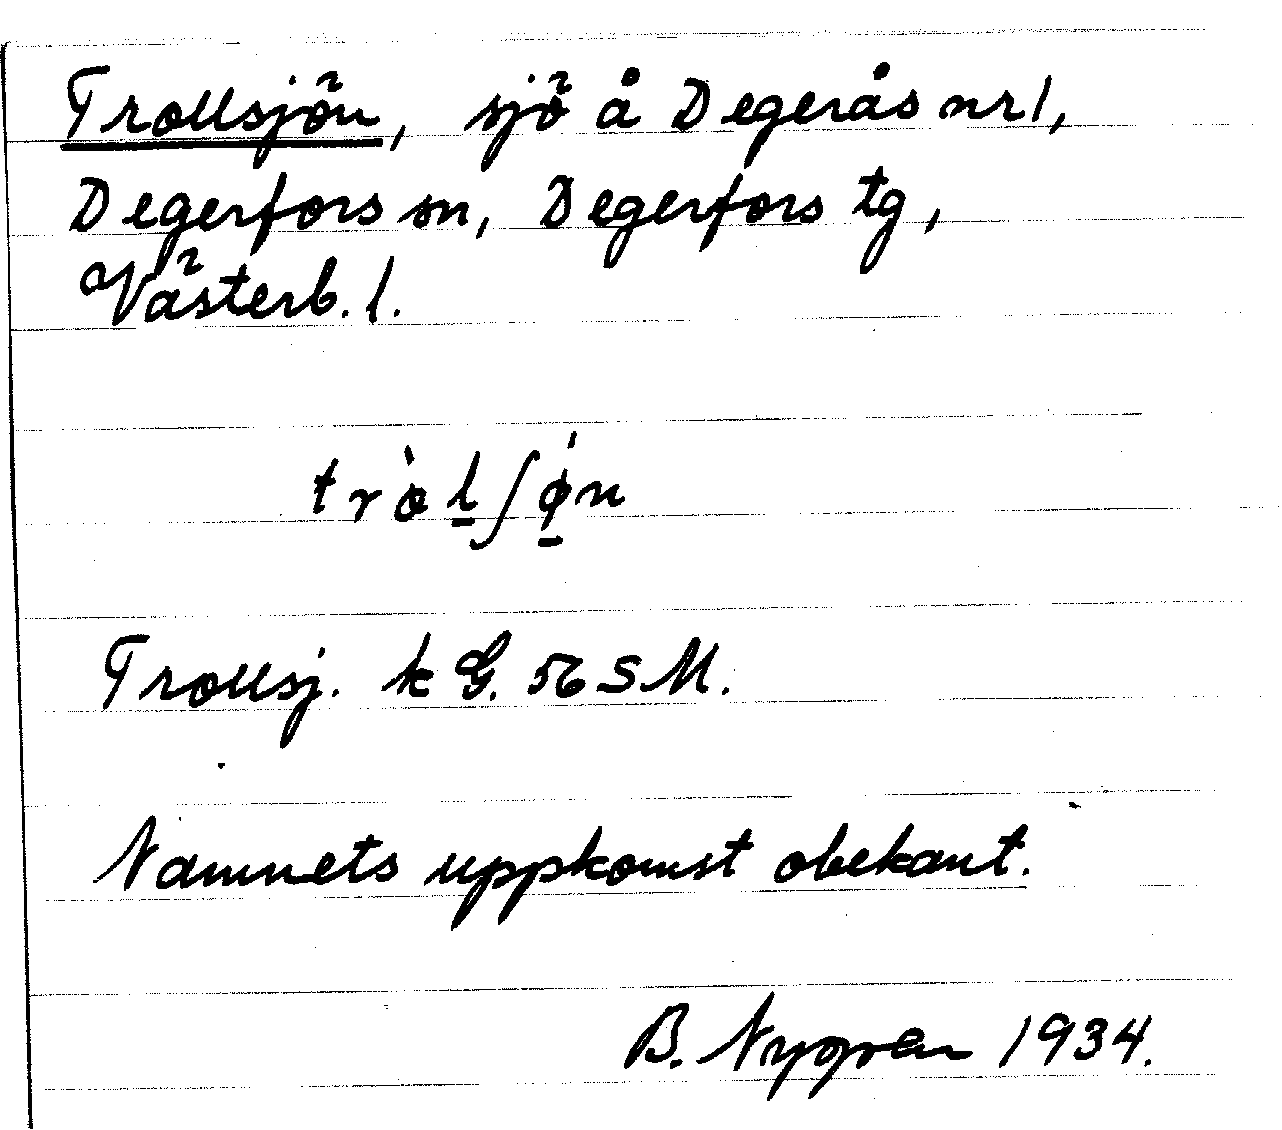 Trollsjön, sjö å Degerås nr 1,
Degerfors sn, Degerfors tg,
Västerb. l.
tròl̠ʃǿ̠n
Trollsj. k G. 56 SM.
Namnets uppkomst obekant.
B. Nygren 1934.